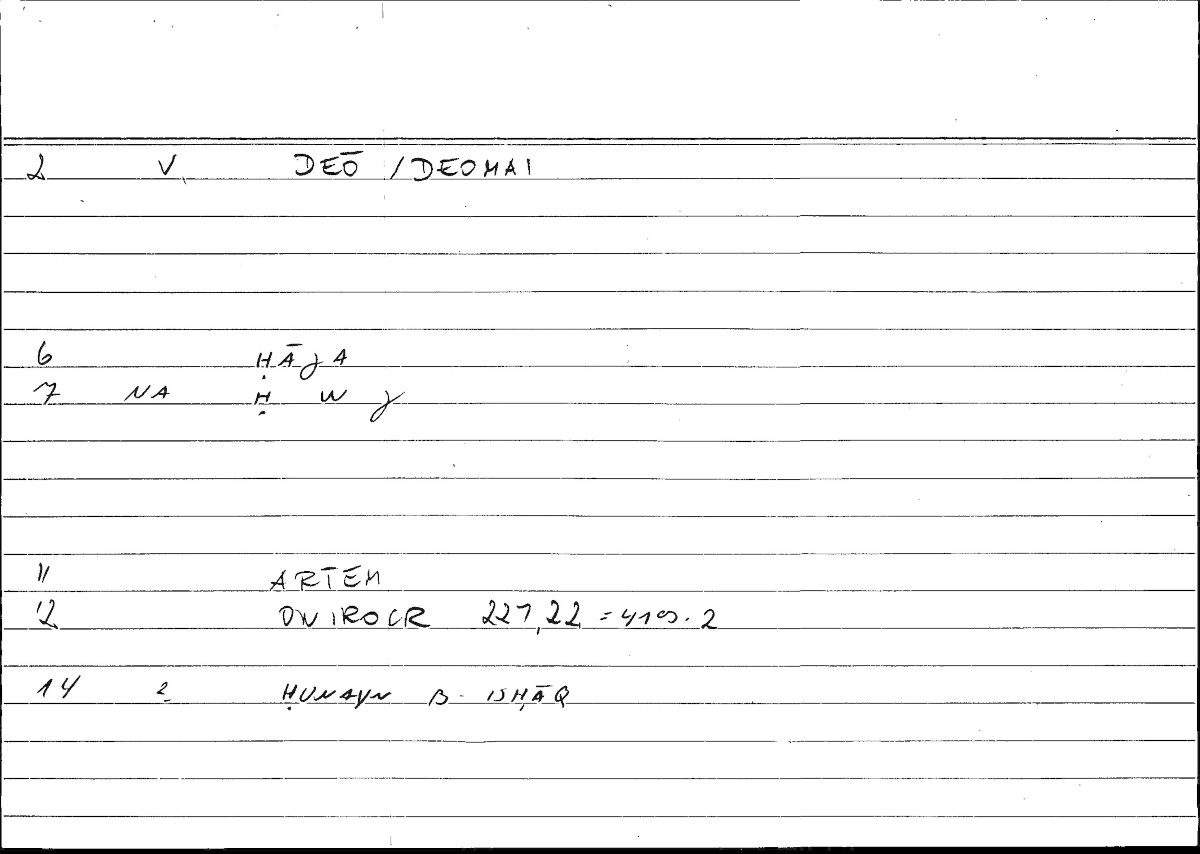 2 V. DEŌ / DEOMAI
6 ḤĀJA
7 NA Ḥ W J
11 ARTEM
12 ONIROCR 227,22 = 4109.2
14 2 ḤUNAYN B. ISḤĀQ